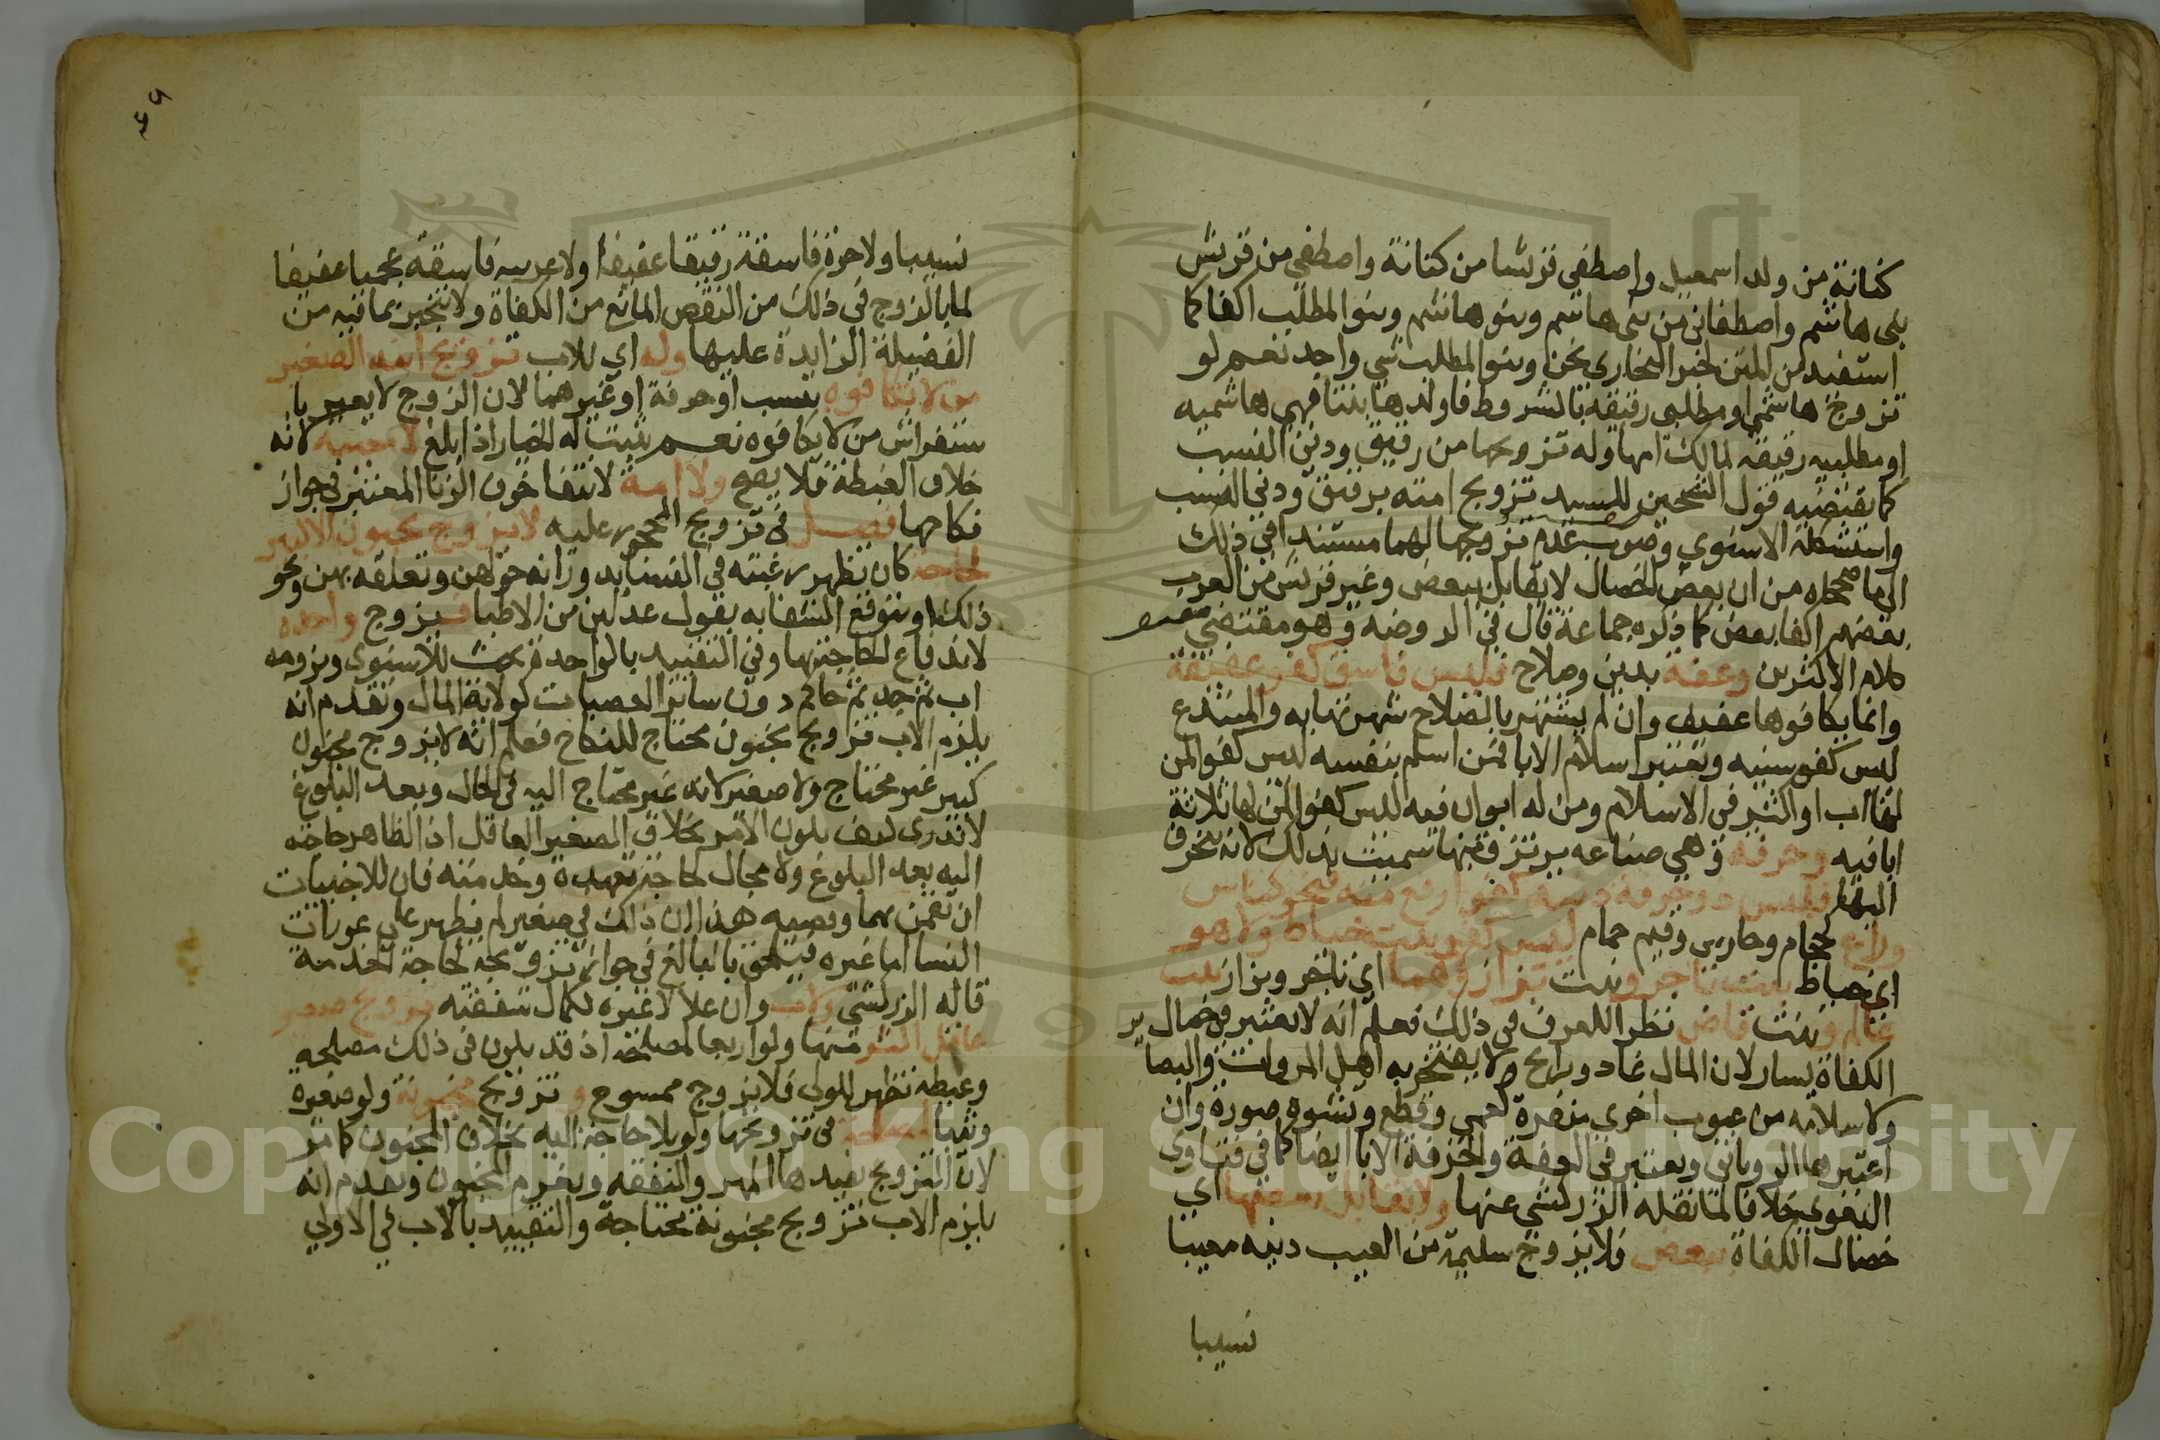 كنانة من ولد اسمعيل واصطفى قريشا من كنانة واصطفى من قريش
بني هاشم واصطفاني من بني هاشم وبنو هاشم وبنو المطلب اكفا كما
استفيد من المتن لخبر البخاري نحن وبنو المطلب شي واحد نعم لو
تزوج هاشمي او مطلبي رقيقة بالشروط فاولدها بنتا فهي هاشمية
او مطلبيه رقيقة لمالك امها وله تزويجها من رقيق ودني النسب
كما يقتضيه قول الشيخين للسيد تزويج امته برقيق ودني النسب
واستشكله الاسنوي وصوب عدم تزويجها لهما مستندا في ذلك
الى ما صححاه من ان بعض الخصال لا يقابل ببعض وغير قريش من العرب
بعضهم اكفا بعض كما ذكره جماعة قال في الروضة وهو مقتضي
كلام الاكثرين وعفة بدين وصلاح فليس فاسق كفو عفيفة
وانما يكافوها عفيف وان لم يشتهر بالصلاح شهرتها به والمبتدع
ليس كفو سنيه ويعتبر اسلام الابا فمن اسلم بنفسه ليس كفوا لمن
لها اب او اكثر في الاسلام ومن له ابوان فيه ليس كفوا لمن لها ثلاثة
ابا فيه وحرفة وهي صناعه يرتزق منها سميت بذلك لانه ينحرف
اليها فليس ذو حرفة دنية كفو ارفع منه فنحو كناس
وراع كحجام وحارس وقيم حمام ليس كفو بنت خياط ولا هو
اي خياط بنت تاجر وبنت بزاز ولا هما اي تاجر وبزاز بنت
عالم وبنت قاض نظرا للعرف في ذلك فعلم انه لا يعتبر في خصال
الكفاة يسار لان المال غاد ورايح ولا يفتخر به اهل المروات والبصاير
ولا سلامة من عيوب اخرى منفرة كعمى وقطع وتشوه صورة وان
اعتبرها الروياني ويعتبر في العفة والحرفة الابا ايضا كما في فتاوى
البغوي خلافا لما نقله الزركشي عنها ولا يقابل بعضها اي
خصال الكفاة ببعض فلا يزوج سليمة من العيب دنيه معيبا
نسيبا
نسيبا ولا حرة فاسقة رقيقا عفيفا ولا عربيه فاسقة عجميا عفيفا
لما بالزوج في ذلك من النقص المانع من الكفاة ولا ينجبر بما فيه من
الفضيلة الزايدة عليها وله اي للاب تزويج ابنه الصغير
من لا تكافوه بنسب او حرفة او غيرهما لان الزوج لا يعير با
ستفراش من لا يكافوه نعم يثبت له الخيار اذا بلغ لا معيبة لانه
خلاف الغبطة فلا يصح ولا امة لانتفا خوف الزنا المعتبر في جواز
نكاحها فصل في تزويج المحجور عليه لا يزوج مجنون الا كبير
لحاجة كان تظهر رغبته في النسا بدورانه حولهن وتعلقه بهن ونحو
ذلك او يتوقع الشفا به بقول عدلين من الاطبا فيزوج واحدة
لاندفاع الحاجة بها وفي التقييد بالواحدة بحث للاسنوي ويزوجه
اب ثم جد ثم حاكم دون ساير العصبات كولاية المال وتقدم انه
يلزم الاب تزويج مجنون محتاج للنكاح فعلم انه لا يزوج مجنون
كبير غير محتاج ولا صغير لانه غير محتاج اليه في الحال وبعد البلوغ
لا ندري كيف يكون الامر بخلاف الصغير العاقل اذ الظاهر حاجته
اليه بعد البلوغ ولا مجال لحاجة تعهده وخدمته فان للاجنبيات
ان يقمن بهما وقضيه هذا ان ذلك في صغير لم يظهر على عورات
النسا اما غيره فيلحق بالبالغ في جواز تزويجه لحاجة الخدمة
قاله الزركشي ولاب وان علا لا غيره لكمال شفقته تزويج صغير
عاقل اكثر منها ولو اربعا لمصلحة اذ قد يكون في ذلك مصلحه
وغبطه تظهر للولي فلا يزوج ممسوح وتزويج مجنونة ولو صغيرة
وثيبا لمصلحة في تزويجها ولو بلا حاجة اليه بخلاف المجنون كما مر
لان التزويج يفيدها المهر والنفقه ويغرم المجنون وتقدم انه
يلزم الاب تزويج مجنونة محتاجة والتقييد بالاب في الاولى
Copyright © King Saud University